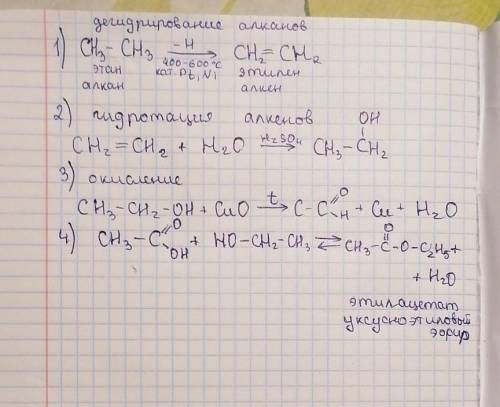 дегидрирование алканов
1) CH₃–CH₃ –H→ CH₂=CH₂
400-600°C
этан кат. Pt, Ni этилен
алкан алкен
2) гидротация алкенов
OH
CH₂=CH₂ + H₂O H₂SO₄→ CH₃–CH₂
3) окисление
CH₃–CH₂–OH + CuO t→ C–C O H + Cu + H₂O
4) CH₃–C O OH + HO–CH₂–CH₃ ⇌ CH₃–C O –O–C₂H₅ +
+ H₂O
этилацетат
уксусноэтиловый
эфир